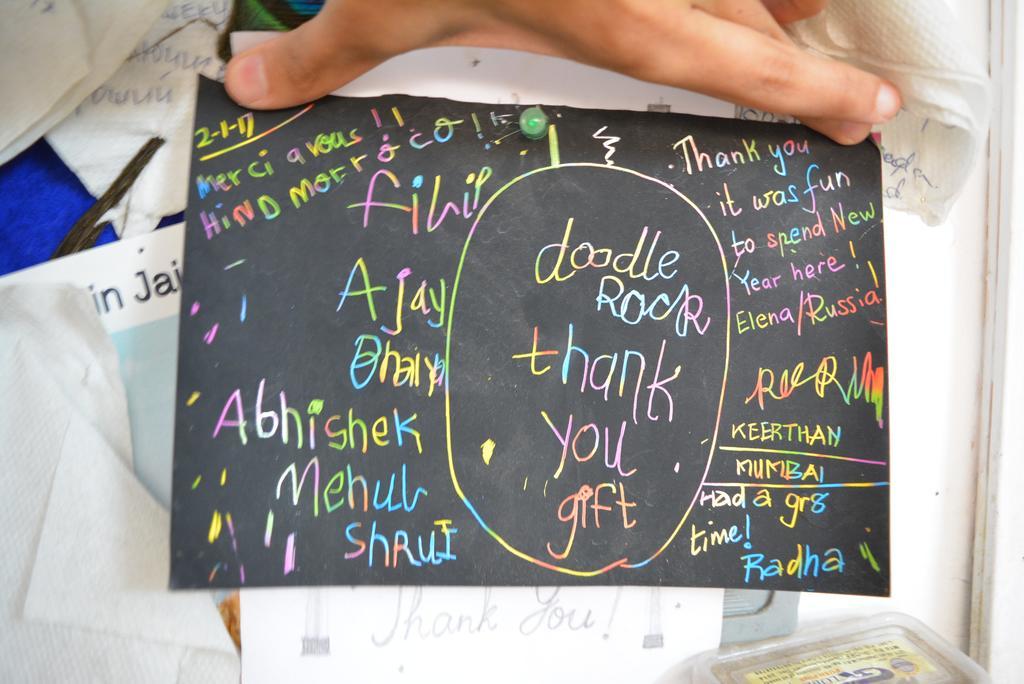 2-1-17
Merci a vous !!
HIND Morr & CO !!
Filip
Ajay
Bhaiya
Abhishek
Mehul
ShRuI
doodle
ROCK
thank
you
gift
Thank you
it was fun
to spend New
Year here!
Elena/Russia!
KEERTHAN
MUMBAI
Had a gr8
time!
Radha
in Jai
Thank You!